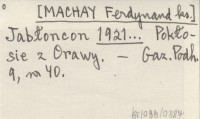 [MACHAY Ferdynand ks.]
Jabłoncon 1921... Pokło-
sie z Orawy. — Gaz. Podh.
9, nr 40.